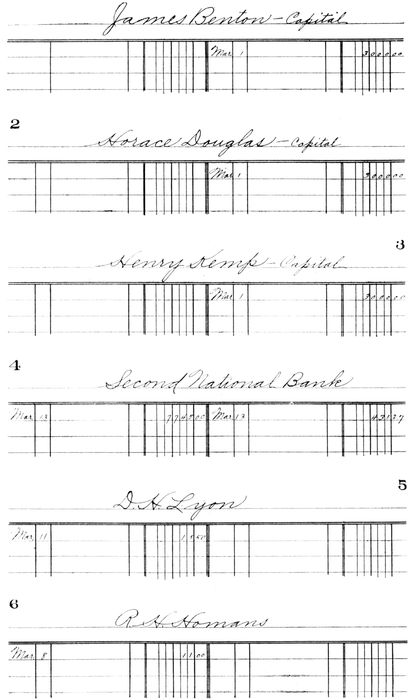 James Benton - Capital
Mar 1 300000
2
Horace Douglas - Capital
Mar 1 300000
3
Henry Kemp - Capital
Mar 1 300000
4
Second National Bank
Mar 13 Mar 13
5
D. H. Lyon
Mar 11
6
R. H. Homans
Mar 8 1100